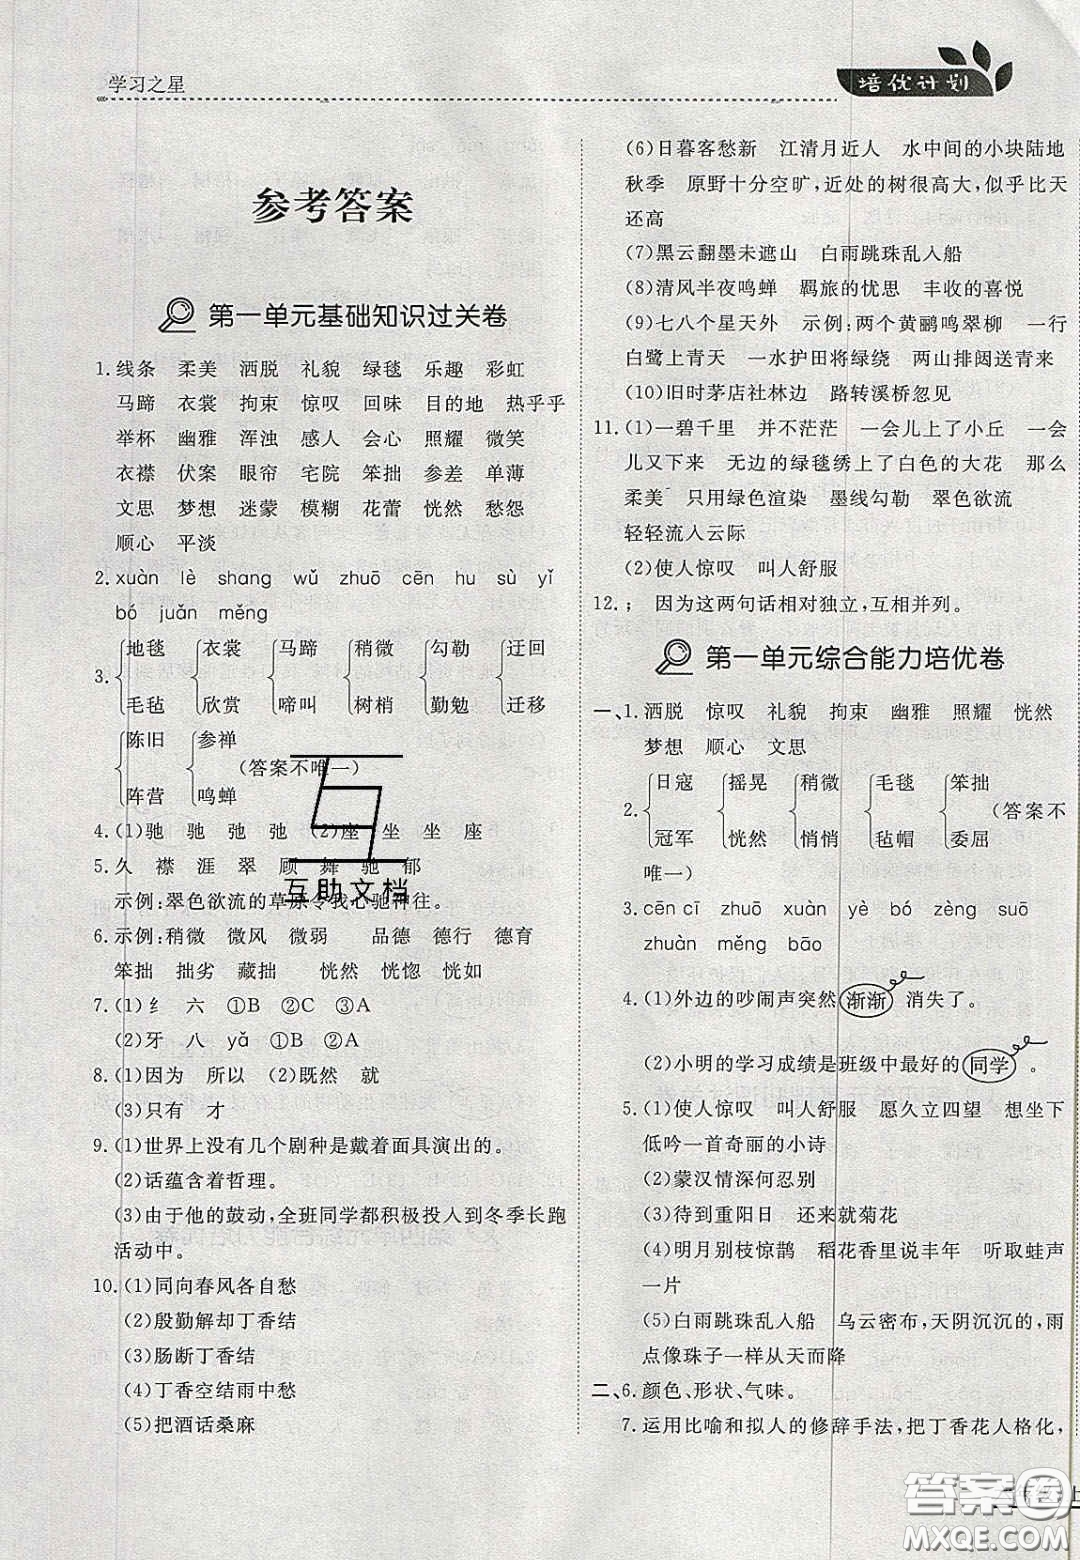 学习之星
培优计划
参考答案
第一单元基础知识过关卷
1.线条 柔美 洒脱 礼貌 绿毯 乐趣 彩虹
马蹄 衣裳 拘束 惊叹 回味 目的地 热乎乎
举杯 幽雅 浑浊 感人 会心 照耀 微笑
衣襟 伏案 眼帘 宅院 笨拙 参差 单薄
文思 梦想 迷蒙 模糊 花蕾 恍然 愁怨
顺心 平淡
2.xuàn lè shang wǔ zhuō cēn hu sù yǐ
bó juǎn měng
3.地毯 衣裳 马蹄 稍微 勾勒 迂回
毛毡 欣赏 啼叫 树梢 勤勉 迁移
陈旧 参禅
(答案不唯一)
阵营 鸣蝉
4.(1)驰 驰 弛 弛 (2)座 坐 坐 座
5.久 襟 涯 翠 顾 舞 驰 郁
示例:翠色欲流的草原令我心驰神往。
6.示例:稍微 微风 微弱 品德 德行 德育
笨拙 拙劣 藏拙 恍然 恍惚 恍如
7.(1)纟 六 ①B ②C ③A
(2)牙 八 yǎ ①B ②A
8.(1)因为 所以 (2)既然 就
(3)只有 才
9.(1)世界上没有几个剧种是戴着面具演出的。
(2)话蕴含着哲理。
(3)由于他的鼓动,全班同学都积极投入到冬季长跑
活动中。
10.(1)同向春风各自愁
(2)殷勤解却丁香结
(3)肠断丁香结
(4)丁香空结雨中愁
(5)把酒话桑麻
(6)日暮客愁新 江清月近人 水中间的小块陆地
秋季 原野十分空旷,近处的树很高大,似乎比天
还高
(7)黑云翻墨未遮山 白雨跳珠乱入船
(8)清风半夜鸣蝉 羁旅的忧思 丰收的喜悦
(9)七八个星天外 示例:两个黄鹂鸣翠柳 一行
白鹭上青天 一水护田将绿绕 两山排闼送青来
(10)旧时茅店社林边 路转溪桥忽见
11.(1)一碧千里 并不茫茫 一会儿上了小丘 一会
儿又下来 无边的绿毯绣上了白色的大花 那么
柔美 只用绿色渲染 墨线勾勒 翠色欲流
轻轻流入云际
(2)使人惊叹 叫人舒服
12.; 因为这两句话相对独立,互相并列。
第一单元综合能力培优卷
一、1.洒脱 惊叹 礼貌 拘束 幽雅 照耀 恍然
梦想 顺心 文思
2.日寇 摇晃 稍微 毛毯 笨拙
(答案不
冠军 恍然 悄悄 毡帽 委屈
唯一)
3.cēn cī zhuō xuàn yè bó zèng suō
zhuàn měng bāo
4.(1)外边的吵闹声突然渐渐消失了。
(2)小明的学习成绩是班级中最好的同学。
5.(1)使人惊叹 叫人舒服 愿久立四望 想坐下
低吟一首奇丽的小诗
(2)蒙汉情深何忍别
(3)待到重阳日 还来就菊花
(4)明月别枝惊鹊 稻花香里说丰年 听取蛙声
一片
(5)白雨跳珠乱入船 乌云密布,天阴沉沉的,雨
点像珠子一样从天而降
二、6.颜色、形状、气味。
7.运用比喻和拟人的修辞手法,把丁香花人格化,
互助文档
答案卷
MXQE.COM
上